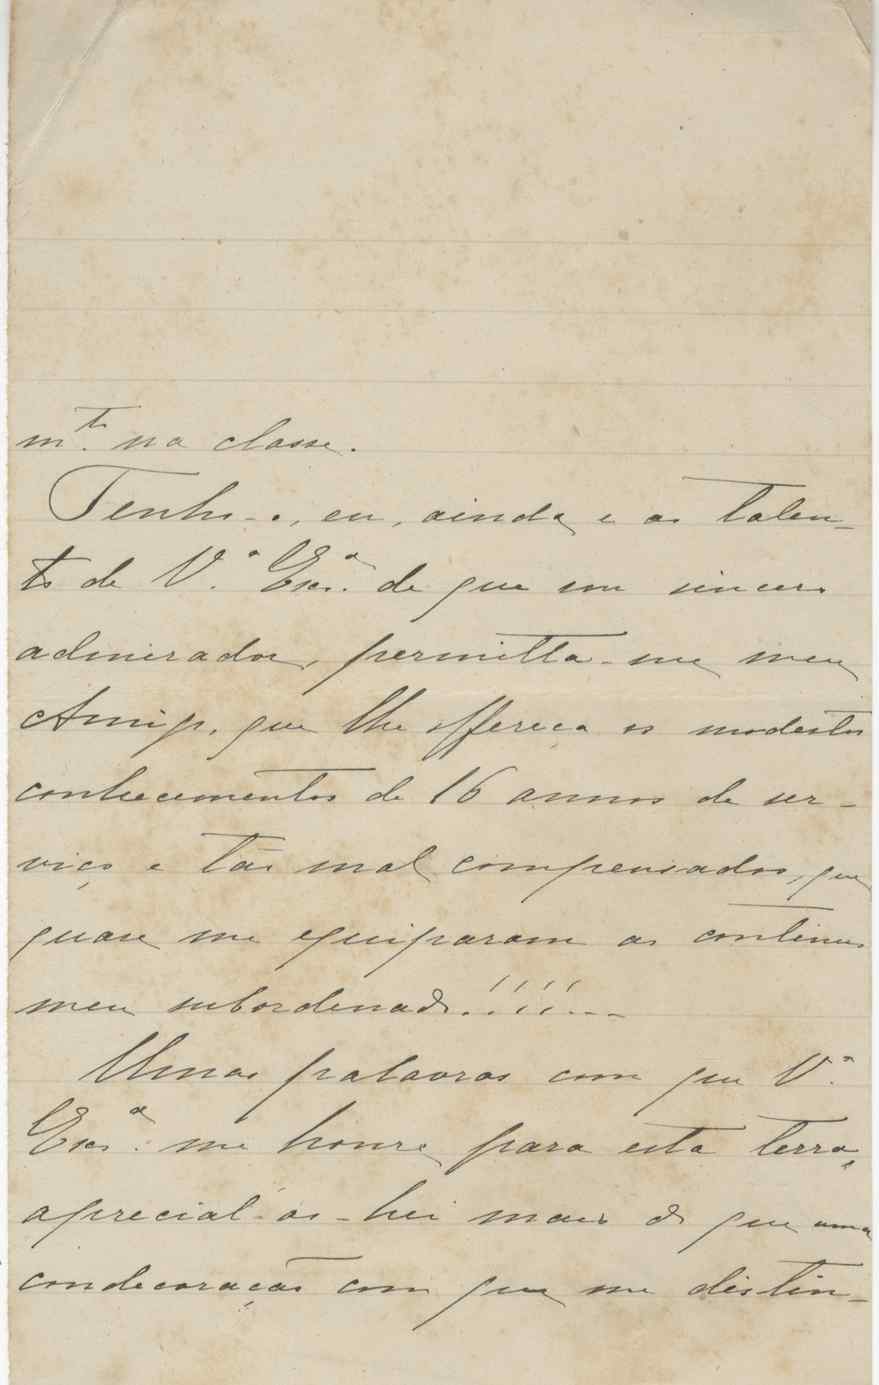 m.to na classe.
Tenho-o, eu, ainda e aos talen-
tos de V.ª Ex.ª de que sou sincero
admirador, permitta-me meu
Amigo, que lhe offereça os modestos
conhecimentos de 16 annos de ser-
viço e tão mal compensados, que
quase me equiparam ao continuo
meu subordenado!!!!...
Umas palavras com que V.ª
Ex.ª me honre, para esta terra,
aprecial-as-hei mais do que uma
condecoração com que me distin-